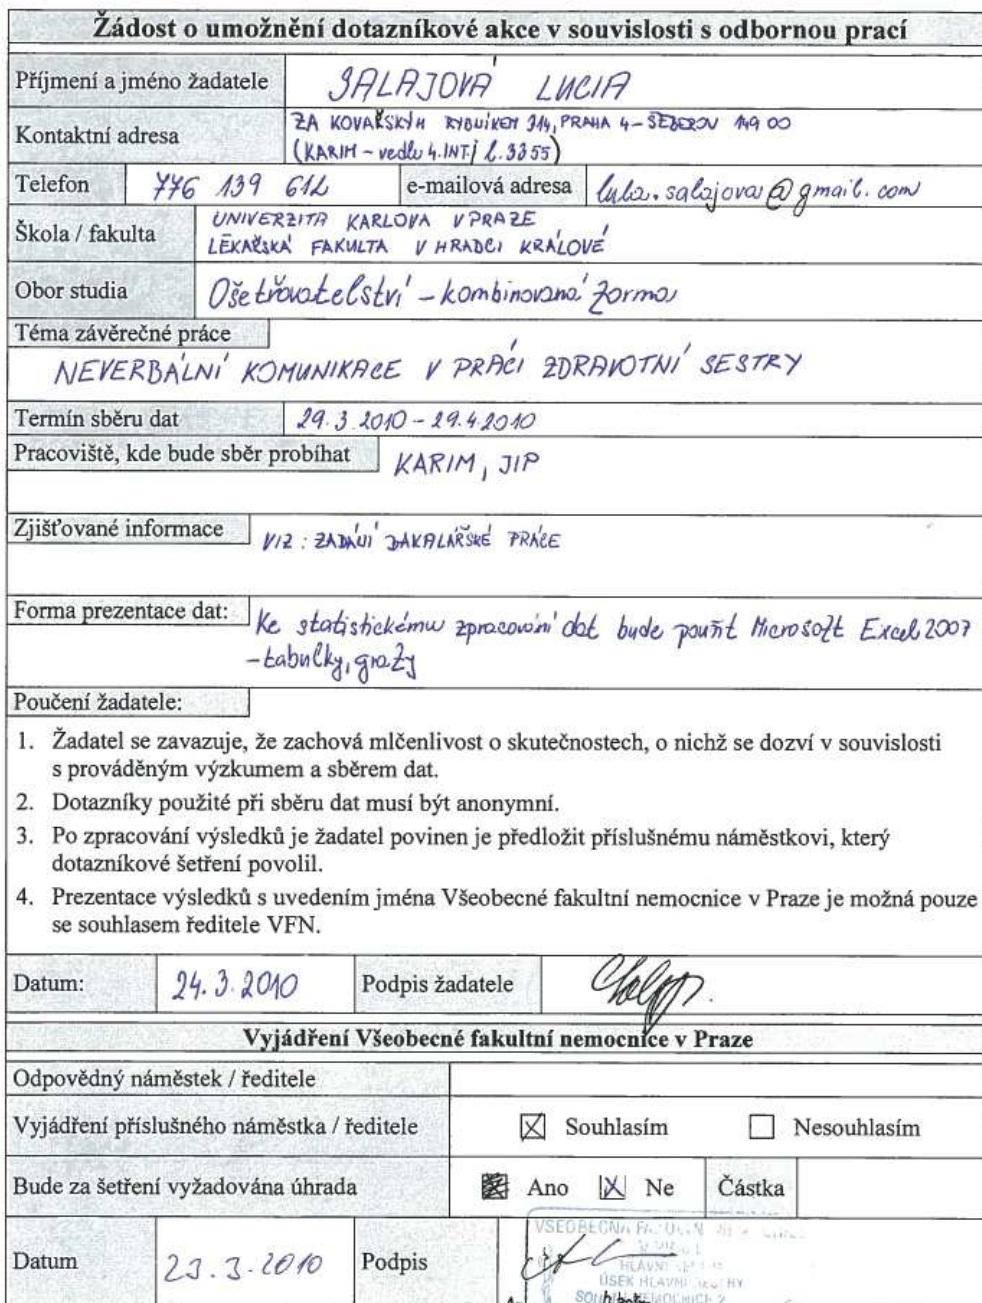 Žádost o umožnění dotazníkové akce v souvislosti s odbornou prací
Příjmení a jméno žadatele SALAJOVÁ LUCIA
Kontaktní adresa ZA KOVAŘSKÝM RYBNÍKEM 314, PRAHA 4 - ŠEBEROV 149 00
(KARIM - vedle 4.INT; l. 3355)
Telefon 776 139 612 e-mailová adresa lula.salajova@gmail.com
Škola / fakulta UNIVERZITA KARLOVA V PRAZE
LÉKAŘSKÁ FAKULTA V HRADCI KRÁLOVÉ
Obor studia Ošetřovatelství - kombinovaná forma
Téma závěrečné práce
NEVERBÁLNÍ KOMUNIKACE V PRÁCI ZDRAVOTNÍ SESTRY
Termín sběru dat 29.3.2010 - 29.4.2010
Pracoviště, kde bude sběr probíhat KARIM, JIP
Zjišťované informace VIZ: ZADÁNÍ BAKALÁŘSKÉ PRÁCE
Forma prezentace dat: Ke statistickému zpracování dat bude použit Microsoft Excel 2007
- tabulky, grafy
Poučení žadatele:
1. Žadatel se zavazuje, že zachová mlčenlivost o skutečnostech, o nichž se dozví v souvislosti
s prováděným výzkumem a sběrem dat.
2. Dotazníky použité při sběru dat musí být anonymní.
3. Po zpracování výsledků je žadatel povinen je předložit příslušnému náměstkovi, který
dotazníkové šetření povolil.
4. Prezentace výsledků s uvedením jména Všeobecné fakultní nemocnice v Praze je možná pouze
se souhlasem ředitele VFN.
Datum: 24.3.2010 Podpis žadatele
Vyjádření Všeobecné fakultní nemocnice v Praze
Odpovědný náměstek / ředitele
Vyjádření příslušného náměstka / ředitele Souhlasím Nesouhlasím
Bude za šetření vyžadována úhrada Ano Ne Částka
VŠEOBECNÁ
HLAVNÍ
ÚSEK HLAVNÍ
Datum 23.3.2010 Podpis